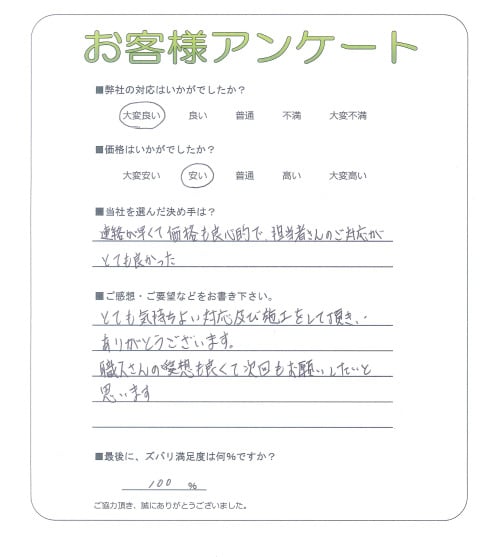 お客様アンケート
■弊社の対応はいかがでしたか？
大変良い 良い 普通 不満 大変不満
■価格はいかがでしたか？
大変安い 安い 普通 高い 大変高い
■当社を選んだ決め手は？
連絡が早くて価格も良心的で、担当者さんのご対応が
とても良かった
■ご感想・ご要望などをお書き下さい。
とても気持ちよい対応及び施工をして頂き、
ありがとうございます。
職人さんの愛想も良くて次回もお願いしたいと
思います
■最後に、ズバリ満足度は何％ですか？
100 ％
ご協力頂き、誠にありがとうございました。